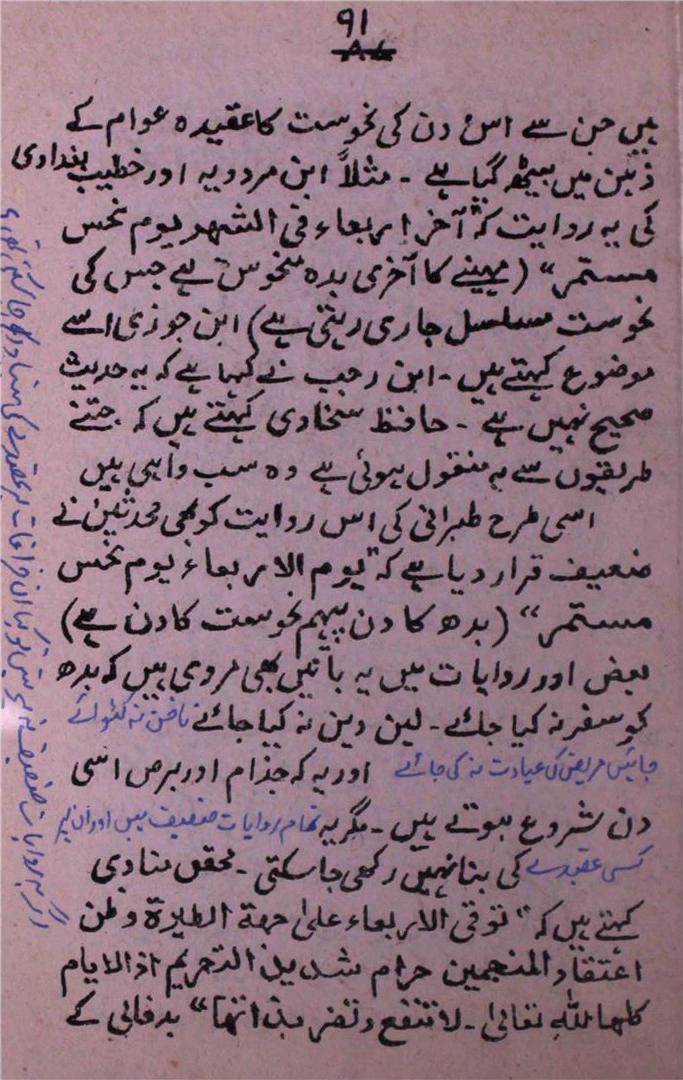 ۹۱
ہیں جن سے اس دن کی نحوست کا عقیدہ عوام کے
ذہن میں بیٹھ گیا ہے ۔ مثلاً ابن مردویہ اور خطیب بغدادی
کی یہ روایت کہ "آخر اربعاء فی الشہر یوم نحس
مستمر" (مہینے کا آخری بدھ منحوس ہے جس کی
نحوست مسلسل جاری رہتی ہے) ابن جوزی اسے
موضوع کہتے ہیں ۔ ابن رجب نے کہا ہے کہ یہ حدیث
صحیح نہیں ہے ۔ حافظ سخاوی کہتے ہیں کہ جتنے
طریقوں سے یہ منقول ہوئی ہے وہ سب واہی ہیں
اسی طرح طبرانی کی اس روایت کو بھی محدثین نے
ضعیف قرار دیا ہے کہ "یوم الاربعاء یوم نحس
مستمر" (بدھ کا دن پیہم نحوست کا دن ہے)
بعض اور روایات میں یہ باتیں بھی مروی ہیں کہ بدھ
کو سفر نہ کیا جائے ۔ لین دین نہ کیا جائے ناخن نہ کٹوائے
جائیں مریض کی عیادت نہ کی جائے اور یہ کہ جذام اور برص اسی
دن شروع ہوتے ہیں ۔ مگر یہ تمام روایات ضعیف ہیں اور ان پر
کسی عقیدے کی بنا نہیں رکھی جا سکتی ۔ محقق مناوی
کہتے ہیں کہ "توقی الاربعاء علیٰ جهة الطیرة وظن
اعتقاد المنجمین حرام شدید التحریم اذ الایام
کلها لله تعالیٰ ۔ لا تنفع ولا تضر بذاتها" بدفالی کے